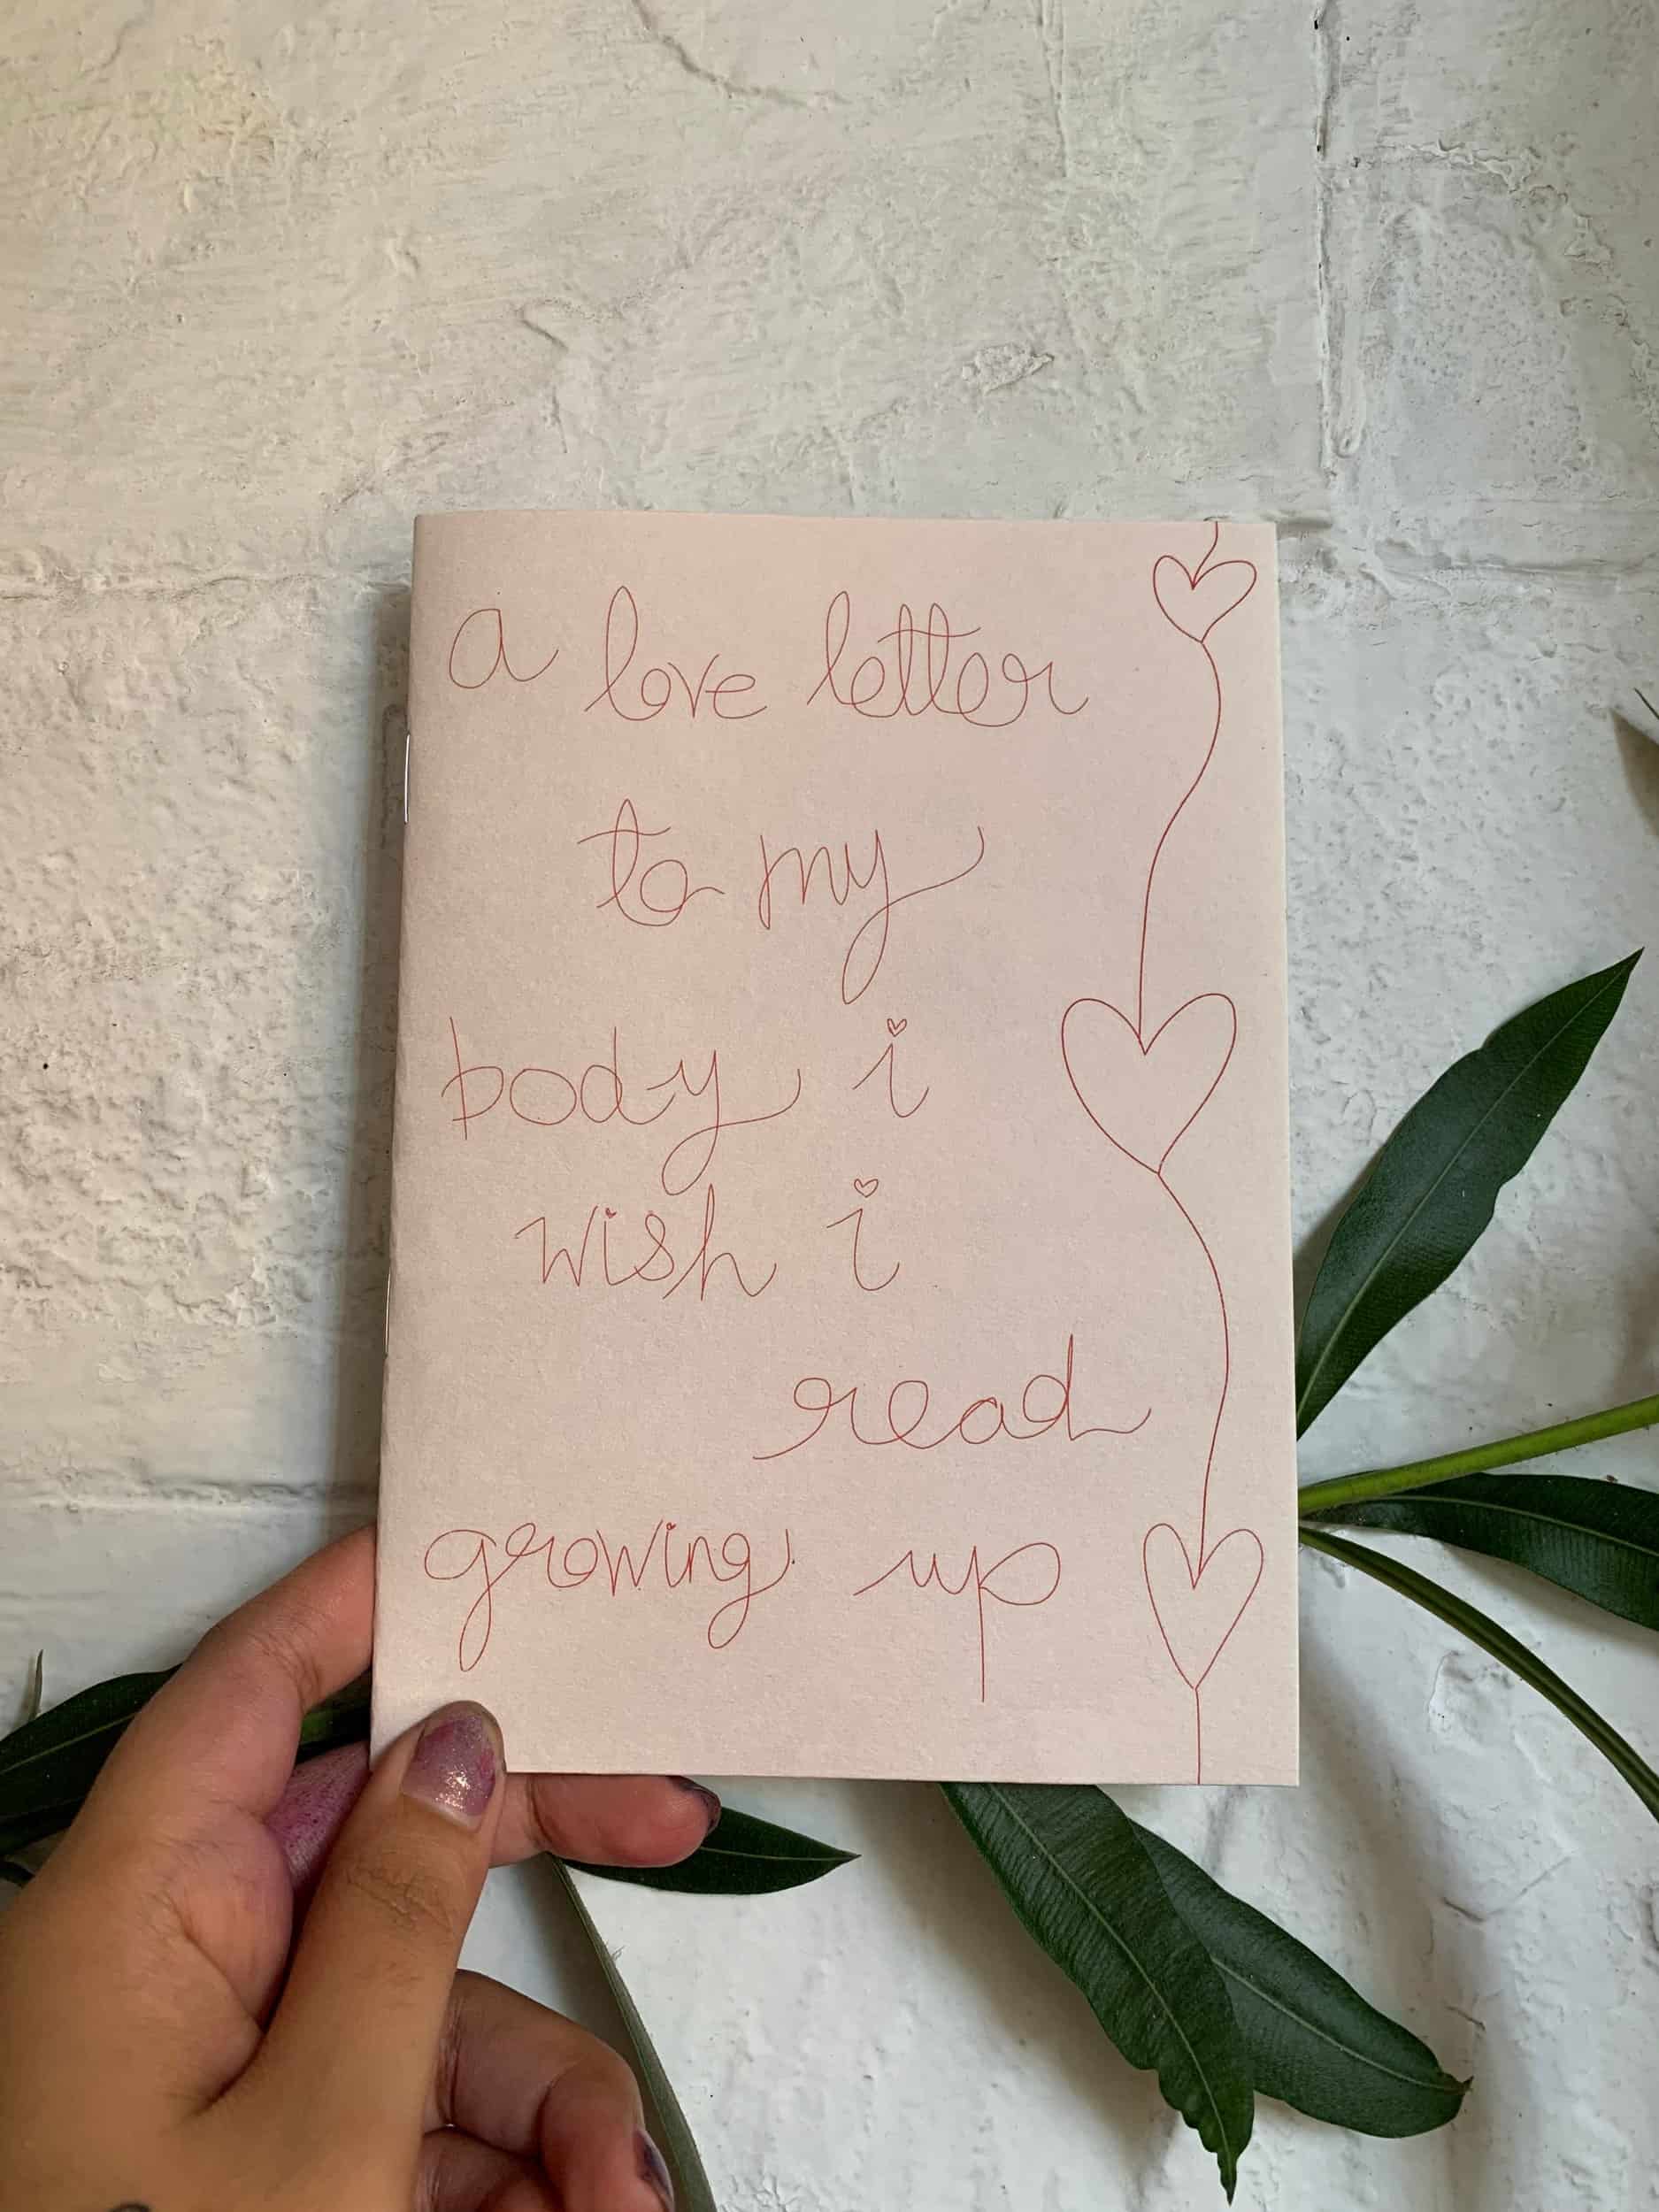 a love letter
to my
body i
wish i
read
growing up